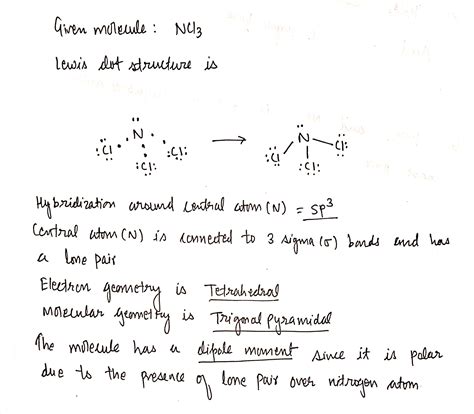 Given molecule : NCl3
Lewis dot structure is
N Cl Cl Cl → N Cl Cl Cl
Hybridization around central atom (N) = sp³
Central atom (N) is connected to 3 sigma (σ) bonds and has
a lone pair
Electron geometry is Tetrahedral
Molecular geometry is Trigonal pyramidal
The molecule has a dipole moment since it is polar
due to the presence of lone pair over nitrogen atom